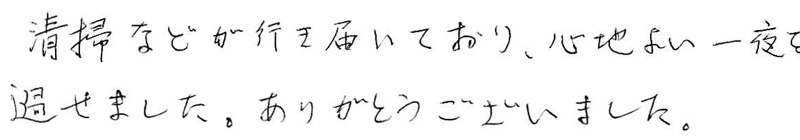 清掃などが行き届いており、心地よい一夜を
過せました。ありがとうございました。